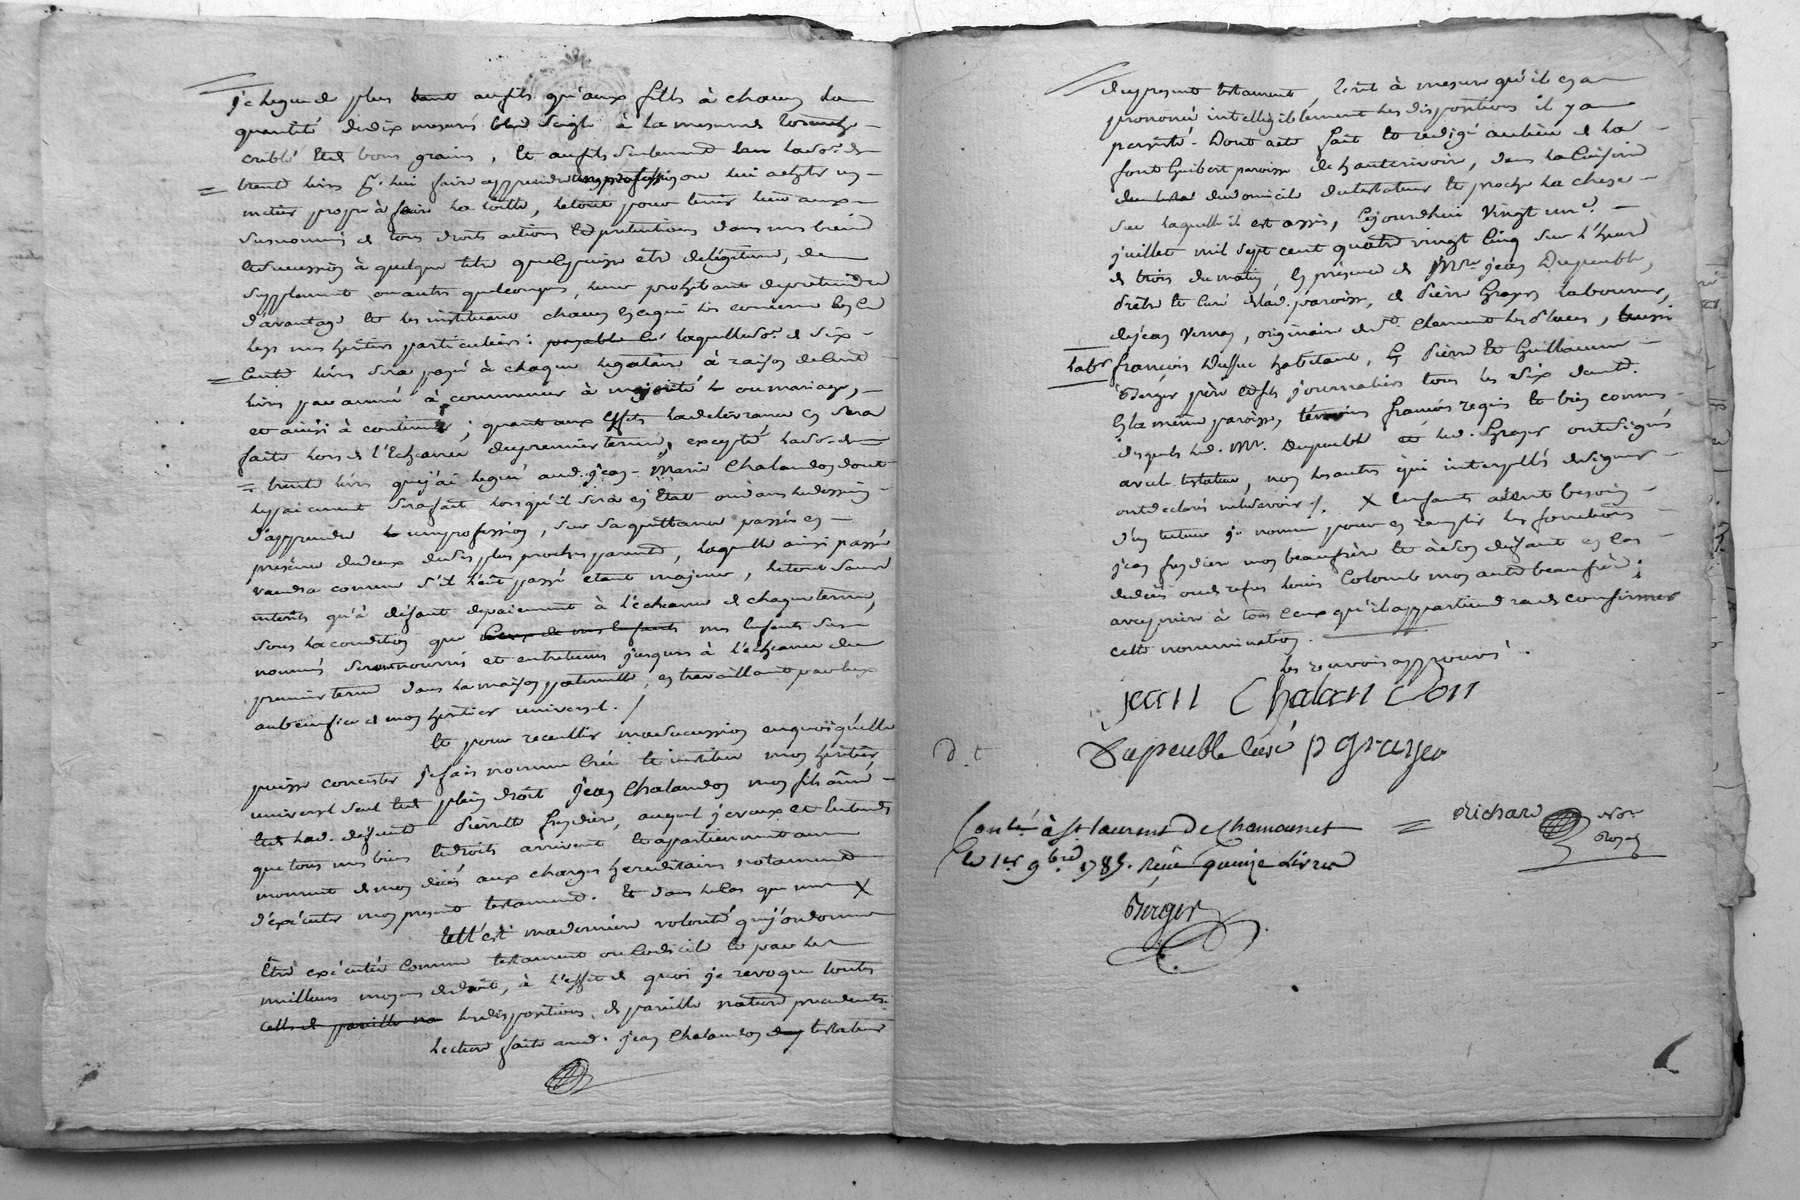 je legue de plus tant au fils qu'aux filles à chacun la
quantité de dix mesures bled seigle à la mesure de
criblé et de bons grains, et au fils seulement la so.e de
trente livres p.r lui faire apprendre une profession ou lui acheter un
metier propre à faire la toille, le tout pour tenir lieu aux
susnommés de tous droits actions et pretentions dans mes biens
et succession à quelque titre que ce puisse etre de legitime, de
supplement ou autres quelconques, leur prohibant de pretendre
d'avantage et les instituant chacun en ce qui les concerne en ce
legs mes heritiers particuliers: payable les laquelle so.e de six
cents livres sera payé à chaque legataire à raison de cent
livres par année à commencer à majorité ou mariage,
et ainsi à continuer; quant aux effets la delivrance en sera
faite lors de l'Echeance du premier terme, excepté la so.e de
trente livres que j'ai legué aud. jean-Marie Chalandon dont
le paiement sera fait lorsqu'il sera en Etat ou dans le dessein
d'apprendre une profession, sur sa quittance passée en
presence de deux de ses plus proches parents, laquelle ainsi passée
vaudra comme s'il l'eût passé etant majeur, le tout sans
interets qu'à defaut de paiement à l'echeance de chaque terme,
sous la condition que ceux de mes enfants mes enfants sus
nommés seront nourris et entretenus jusques à l'echeance du
premier terme dans la maison paternelle, en travaillant par eux
au benefice de mon heritier universel. /
Et pour recueillir ma succession en quoi qu'elle
puisse concister je fais nomme crée et institue mon heritier
universel seul et de plein droit jean Chalandon mon fils ainé
et de lad. defunte Pierrette freydiere, auquel je veux et entends
que tous mes biens et droits arrivent et appartiennent au
moment de mon decès aux charges hereditaires notamment
d'executer mon present testament. Et dans le cas que mes X
Telle est ma derniere volonté que j'ordonne
Être exécutée comme testament ou codicile et par les
meilleurs moyens de droit, à l'effet de quoi je revoque toutes
celles de pareille na les dispositions de pareille nature precedentes.
Lecture faite aud. jean Chalandon testateur
du present testament, Ecrit à mesure qu'il en a
prononcé intelligiblement les dispositions il y a
persisté. Dont acte fait et redigé au lieu de la
font Guibert paroisse de hauterivoire, dans la cuisine
du domicile du testateur et proche la chese
sur laquelle il est assis, cejourdhui vingt un.e
juillet mil sept cent quatre vingt cinq sur l'heure
de trois du matin, en présence de M.re jean Dupeuble,
Prêtre et curé de lad. paroisse, de Pierre Grayer laboureur,
de jean Vernay, originaire de S.t Clement les places,
lab.r françois Dussuc habitant, Pierre et Guillaume
Berger père et fils journaliers tous les six dem.t
En la même paroisse, témoins francois requis et bien connus
desquels led. M.r Dupeuble et led. Grayer ont signés
avec le testateur, non les autres qui interpellés de signer
ont declarés ne le savoir /. X Enfants aient besoin
d'un tuteur je nomme pour en remplir les fonctions
jean freydiere mon beaufrère et à son defaut en cas
de decès ou de refus Louis Colomb mon autre beaufrère;
avec priere à tous ceux qu'il appartiendra de confirmer
cette nommination.
les renvois approuvés.
jean Chalandon
Dupeuble curé p grayer
D. t
Richard No.re
Royal
Con.lé à St laurent De Chamousset
le 1er 9bre 1785. Reçu quinze Livres
Berger